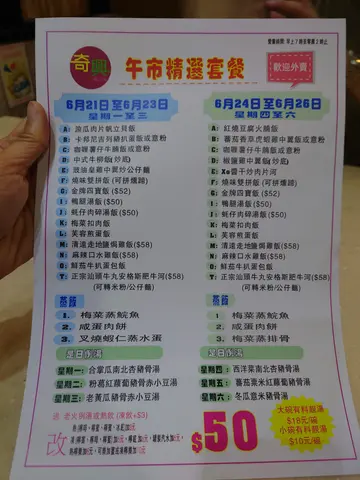 營業時間: 早上7時至晚上2時止
奇興
午市精選套餐
歡迎外賣!
6月21日至6月23日
星期一至三
A: 涼瓜肉片帆立貝飯
B: 卡邦尼吉列豬扒飯或意粉
C: 咖喱薯仔牛腩飯或意粉
D: 中式牛柳(炒底)
E: 豉油皇雞中翼炒公仔麵
F: 燒味雙拼飯(可拼燻蹄)
G: 金牌四寶飯($52)
I: 鴨腿湯飯($50)
J: 蚝仔肉碎湯飯($50)
K: 梅菜扣肉飯
L: 芙蓉煎蛋飯
M: 清遠走地鹽焗雞飯($58)
N: 麻辣口水雞飯($58)
O: 鮮茄牛扒蛋包飯
T: 正宗汕頭牛丸安格斯肥牛河($58)
(可轉米粉/公仔麵)
蒸飯
1. 梅菜蒸鯇魚
2. 咸蛋肉餅
3. 叉燒蝦仁蒸水蛋
是日例湯
星期一: 合掌瓜南北杏豬骨湯
星期二: 粉葛紅蘿蔔豬骨赤小豆湯
星期三: 老黃瓜豬骨赤小豆湯
6月24日至6月26日
星期四至六
A: 紅燒豆腐火腩飯
B: 蕃茄香草虎蝦雞扒飯或意粉
C: 咖喱薯仔牛腩飯或意粉
D: 椒鹽雞中翼(炒底)
E: Xo醬干炒肉片河
F: 燒味雙拼飯(可拼燻蹄)
G: 金牌四寶飯($52)
I: 鴨腿湯飯($50)
J: 蚝仔肉碎湯飯($50)
K: 梅菜扣肉飯
L: 芙蓉煎蛋飯
M: 清遠走地鹽焗雞飯($58)
N: 麻辣口水雞飯($58)
O: 鮮茄牛扒蛋包飯
T: 正宗汕頭牛丸安格斯肥牛河($58)
(可轉米粉/公仔麵)
蒸飯
1 梅菜蒸鯇魚
2. 咸蛋肉餅
3. 梅菜蒸排骨
是日例湯
星期四: 西洋菜南北杏豬骨湯
星期五: 蕃茄粟米紅蘿蔔豬骨湯
星期六: 冬瓜薏米豬骨湯
送 老火例湯或熱飲(凍飲+$3)
改
$50
大碗有料靚湯
$18元/碗
小碗有料靚湯
$10元/碗